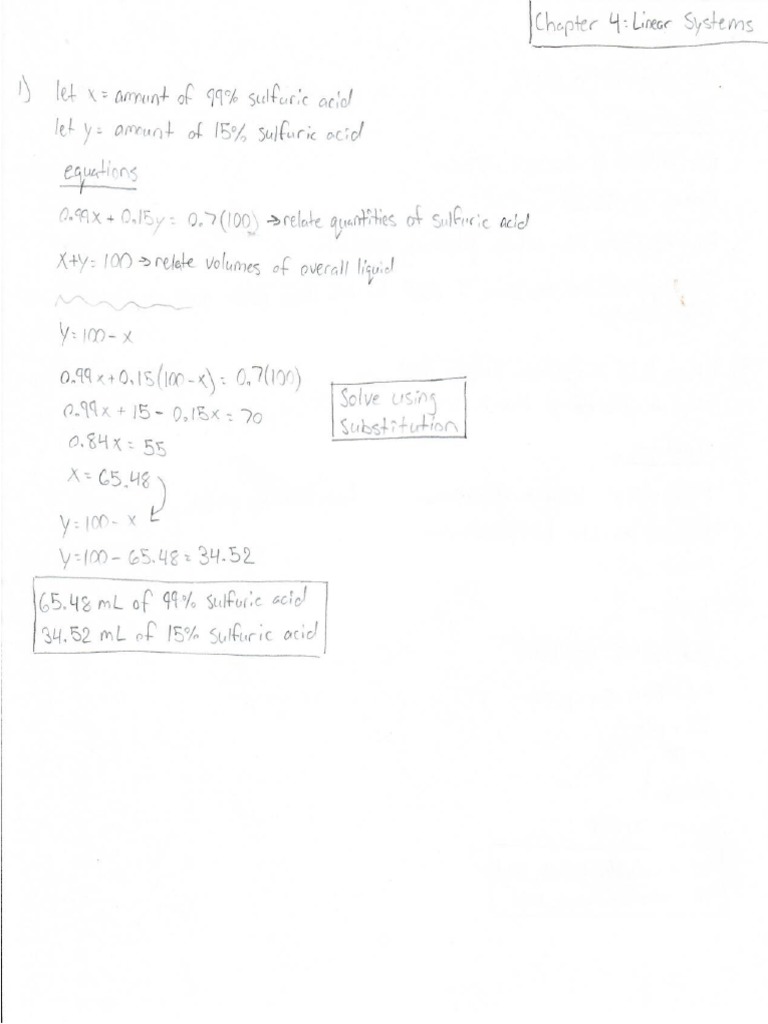 Chapter 4: Linear Systems
1) let x = amount of 99% sulfuric acid
let y = amount of 15% sulfuric acid
equations
0.99x + 0.15y = 0.7(100) → relate quantities of sulfuric acid
x+y = 100 → relate volumes of overall liquid
y = 100 - x
0.99x + 0.15(100-x) = 0.7(100)
0.99x + 15 - 0.15x = 70
0.84x = 55
x = 65.48
y = 100 - x
y = 100 - 65.48 = 34.52
Solve using
substitution
65.48 mL of 99% sulfuric acid
34.52 mL of 15% sulfuric acid